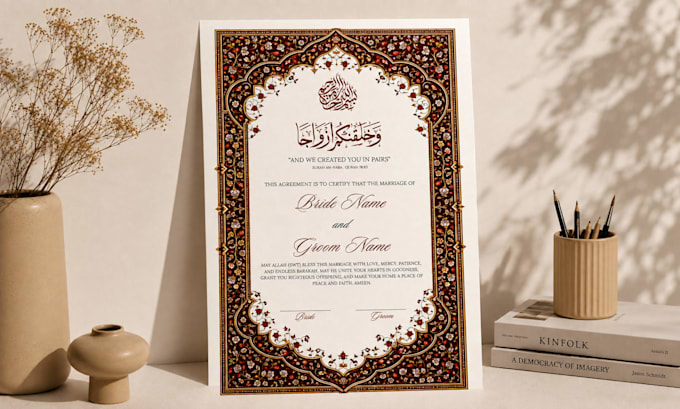 بسم الله الرحمن الرحيم
وَخَلَقْنَكُمْ أَزْوَاجًا
"AND WE CREATED YOU IN PAIRS"
THIS AGREEMENT IS TO CERTIFY THAT THE MARRIAGE OF
Bride Name
and
Groom Name
MAY ALLAH (SWT) BLESS THIS MARRIAGE WITH LOVE, MERCY, PATIENCE,
AND ENDLESS BARAKAH. MAY HE UNITE YOUR HEARTS IN GOODNESS,
GRANT YOU RIGHTEOUS OFFSPRING, AND MAKE YOUR HOME A PLACE OF
PEACE AND FAITH. AMEEN.
Bride Groom
KINFOLK
A DEMOCRACY OF IMAGERY